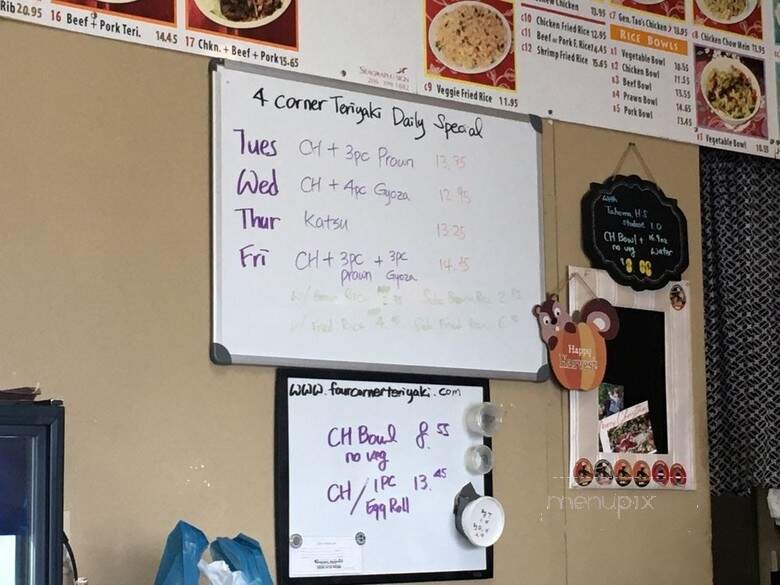 Rib 20.95
16 Beef + Pork Teri. 14.45
17 Chkn. + Beef + Pork 15.65
c9 Veggie Fried Rice 11.95
c10 Chicken Fried Rice 12.95
c11 Beef or Pork F. Rice 14.45
c12 Shrimp Fried Rice 15.65
c7 Gen. Tao's Chicken
RICE BOWLS
r1 Vegetable Bowl 10.55
r2 Chicken Bowl 11.55
r3 Beef Bowl 13.55
r4 Prawn Bowl 14.65
r5 Pork Bowl 13.45
c8 Chicken Chow Mein 11.95
r1 Vegetable Bowl 10.55
4 Corner Teriyaki Daily Special
Tues CH + 3pc Prawn
Wed CH + 4pc Gyoza 12.95
Thur Katsu 13.25
Fri CH + 3pc prawn + 3pc Gyoza
www.fourcornerteriyaki.com
CH Bowl 8.55
no veg
CH / 1PC 13.45
Egg Roll
With
Tahoma H.S
student I.D
CH Bowl +
no veg water
Happy
Harvest
menupix